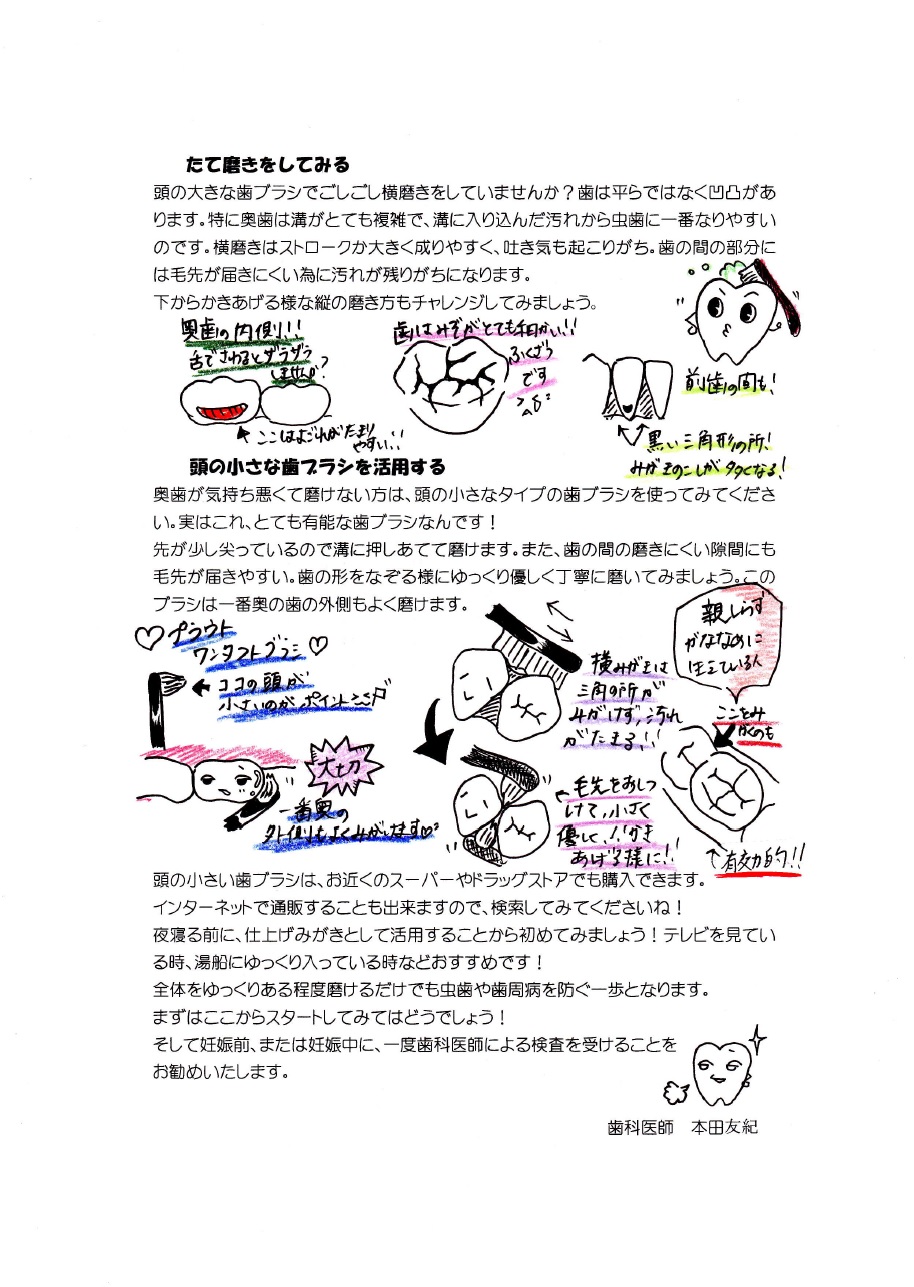 たて磨きをしてみる
頭の大きな歯ブラシでごしごし横磨きをしていませんか？歯は平らではなく凹凸があ
ります。特に奥歯は溝がとても複雑で、溝に入り込んだ汚れから虫歯に一番なりやすい
のです。横磨きはストロークが大きく成りやすく、吐き気も起こりがち。歯の間の部分に
は毛先が届きにくい為に汚れが残りがちになります。
下からかきあげる様な縦の磨き方もチャレンジしてみましょう。
奥歯の内側!!
舌でさわるとザラザラ
しませんか?
ここはよごれがたまり
やすい!!
歯はみぞがとても細かい!!
ふくざつ
です
前歯の間も!
黒い三角形の所!
みがきのこしが多くなる!
頭の小さな歯ブラシを活用する
奥歯が気持ち悪くて磨けない方は、頭の小さなタイプの歯ブラシを使ってみてくださ
い。実はこれ、とても有能な歯ブラシなんです！
先が少し尖っているので溝に押しあてて磨けます。また、歯の間の磨きにくい隙間にも
毛先が届きやすい。歯の形をなぞる様にゆっくり優しく丁寧に磨いてみましょう。この
ブラシは一番奥の歯の外側もよく磨けます。
♡プラウト
ワンタフトブラシ♡
ココの頭が
小さいのがポイント
大切
一番奥の
外側もよくみがけます♡
横みがきは
三角の所が
みがけず、汚れ
がたまる!!
毛先をおしつ
けて、小さく
優しく、かき
あげる様に!!
親しらず
がななめに
生えている人
ここをみ
がくのも
有効的!!
頭の小さい歯ブラシは、お近くのスーパーやドラッグストアでも購入できます。
インターネットで通販することも出来ますので、検索してみてくださいね！
夜寝る前に、仕上げみがきとして活用することから初めてみましょう！テレビを見てい
る時、湯船にゆっくり入っている時などおすすめです！
全体をゆっくりある程度磨けるだけでも虫歯や歯周病を防ぐ一歩となります。
まずはここからスタートしてみてはどうでしょう！
そして妊娠前、または妊娠中に、一度歯科医師による検査を受けることを
お勧めいたします。
歯科医師　本田友紀